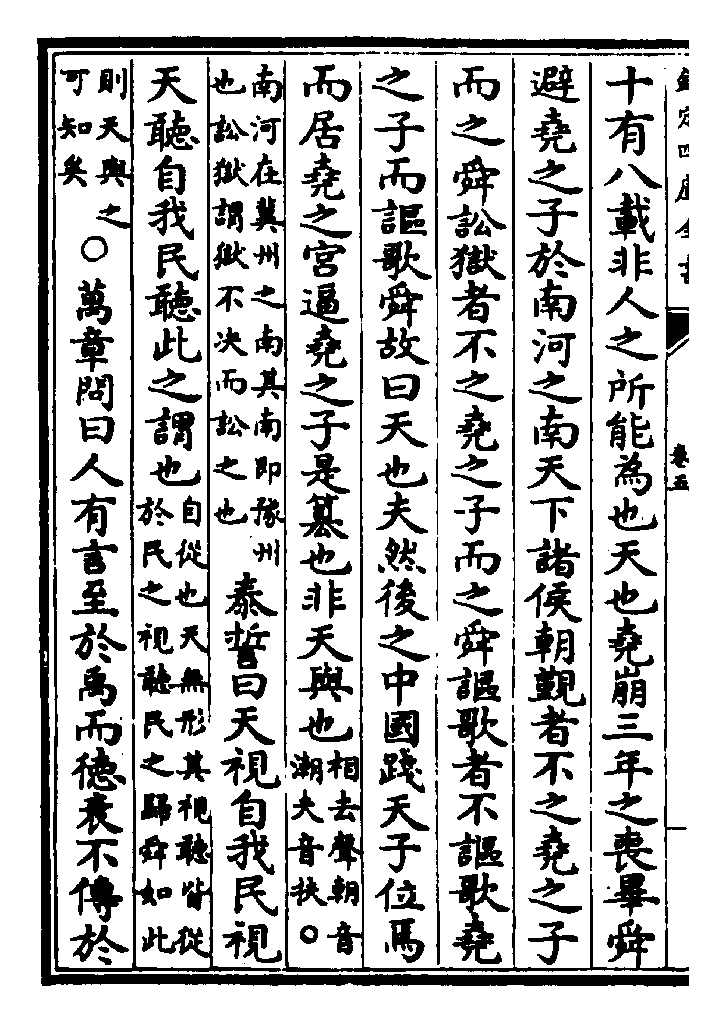 欽定四庫全書
卷五
十有八載非人之所能為也天也堯崩三年之喪畢舜
避堯之子於南河之南天下諸侯朝覲者不之堯之子
而之舜訟獄者不之堯之子而之舜謳歌者不謳歌堯
之子而謳歌舜故曰天也夫然後之中國踐天子位焉
而居堯之宮逼堯之子是篡也非天與也
相去聲朝音
潮夫音扶○
南河在冀州之南其南即豫州
也訟獄謂獄不决而訟之也
泰誓曰天視自我民視
天聽自我民聽此之謂也
自從也天無形其視聽皆從
於民之視聽民之歸舜如此
則天與之
可知矣
○萬章問曰人有言至於禹而德衰不傳於